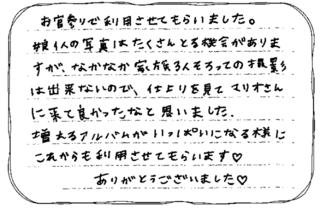 お宮参りで利用させてもらいました。
娘1人の写真はたくさんとる機会がありま
すが、なかなか家族3人そろっての撮影
は出来ないので、仕上りを見てマリオさん
に来て良かったなと思いました.
増えるアルバムがいっぱいになる様に
これからも利用させてもらいます♡
ありがとうございました♡